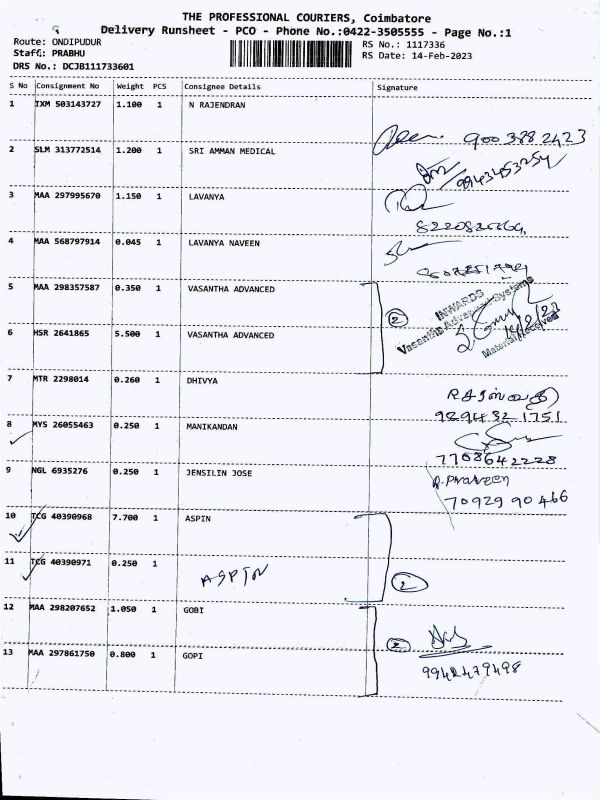 THE PROFESSIONAL COURIERS, Coimbatore
Delivery Runsheet - PCO - Phone No.:0422-3505555 - Page No.:1
Route: ONDIPUDUR
RS No.: 1117336
Staff: PRABHU
RS Date: 14-Feb-2023
DRS No.: DCJB111733601
S No Consignment No Weight PCS Consignee Details Signature
1 IXM 503143727 1.100 1 N RAJENDRAN
900 388 2423
2 SLM 313772514 1.200 1 SRI AMMAN MEDICAL
9943453254
3 MAA 297995670 1.150 1 LAVANYA
4 MAA 568797914 0.045 1 LAVANYA NAVEEN
5 MAA 298357587 0.350 1 VASANTHA ADVANCED
2
INWARDS
Vasantha Advanced Systems
14/2/23
Material Received
6 HSR 2641865 5.500 1 VASANTHA ADVANCED
7 MTR 2298014 0.260 1 DHIVYA
989432 1751
8 MYS 26055463 0.250 1 MANIKANDAN
7708642228
9 NGL 6935276 0.250 1 JENSILIN JOSE
P. Praveen
70929 90466
10 TCG 40390968 7.700 1 ASPIN
11 TCG 40390971 0.250 1
ASPIN
2
12 MAA 298207652 1.050 1 GOBI
2
13 MAA 297861750 0.800 1 GOPI
9942479498